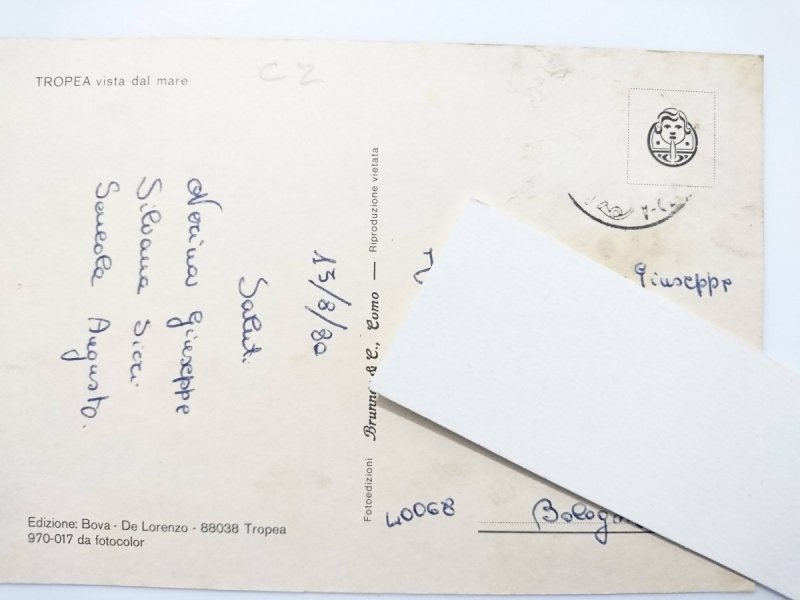 TROPEA vista dal mare
CZ
13/8/80
Saluti
Norina Giuseppe
Silvana Sieri
Augusto.
Fotoedizioni Brunner & C., Como — Riproduzione vietata
Giuseppe
40068
Edizione: Bova - De Lorenzo - 88038 Tropea
970-017 da fotocolor